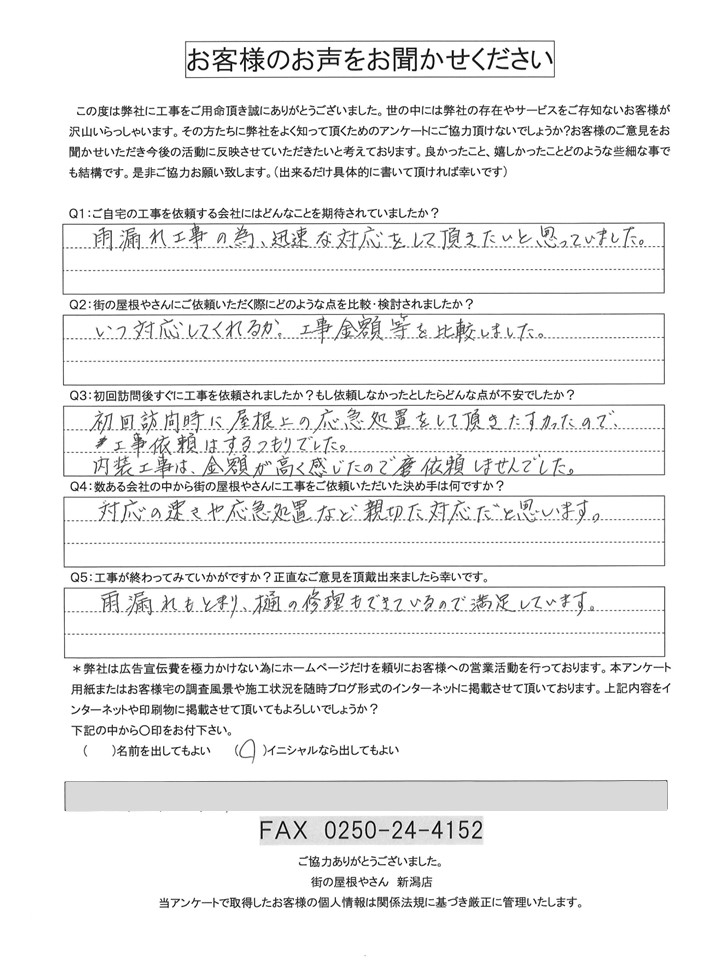 お客様のお声をお聞かせください
この度は弊社に工事をご用命頂き誠にありがとうございました。世の中には弊社の存在やサービスをご存知ないお客様が
沢山いらっしゃいます。その方たちに弊社をよく知って頂くためのアンケートにご協力頂けないでしょうか?お客様のご意見をお
聞かせいただき今後の活動に反映させていただきたいと考えております。良かったこと、嬉しかったことどのような些細な事で
も結構です。是非ご協力お願い致します。(出来るだけ具体的に書いて頂ければ幸いです)
Q1:ご自宅の工事を依頼する会社にはどんなことを期待されていましたか?
雨漏れ工事の為、迅速な対応をして頂きたいと思っていました。
Q2:街の屋根やさんにご依頼いただく際にどのような点を比較・検討されましたか?
いつ対応してくれるか。工事金額等を比較しました。
Q3:初回訪問後すぐに工事を依頼されましたか?もし依頼しなかったとしたらどんな点が不安でしたか?
初回訪問時に屋根上の応急処置をして頂きたすかったので、
工事依頼はするつもりでした。
内装工事は、金額が高く感じたので依頼しませんでした。
Q4:数ある会社の中から街の屋根やさんに工事をご依頼いただいた決め手は何ですか?
対応の速さや応急処置など親切な対応だと思います。
Q5:工事が終わってみていかがですか?正直なご意見を頂戴出来ましたら幸いです。
雨漏れもとまり、樋の修理もできているので満足しています。
*弊社は広告宣伝費を極力かけない為にホームページだけを頼りにお客様への営業活動を行っております。本アンケート
用紙またはお客様宅の調査風景や施工状況を随時ブログ形式のインターネットに掲載させて頂いております。上記内容をイ
ンターネットや印刷物に掲載させて頂いてもよろしいでしょうか?
下記の中から〇印をお付下さい。
( )名前を出してもよい (〇)イニシャルなら出してもよい
FAX 0250-24-4152
ご協力ありがとうございました。
街の屋根やさん 新潟店
当アンケートで取得したお客様の個人情報は関係法規に基づき厳正に管理いたします。